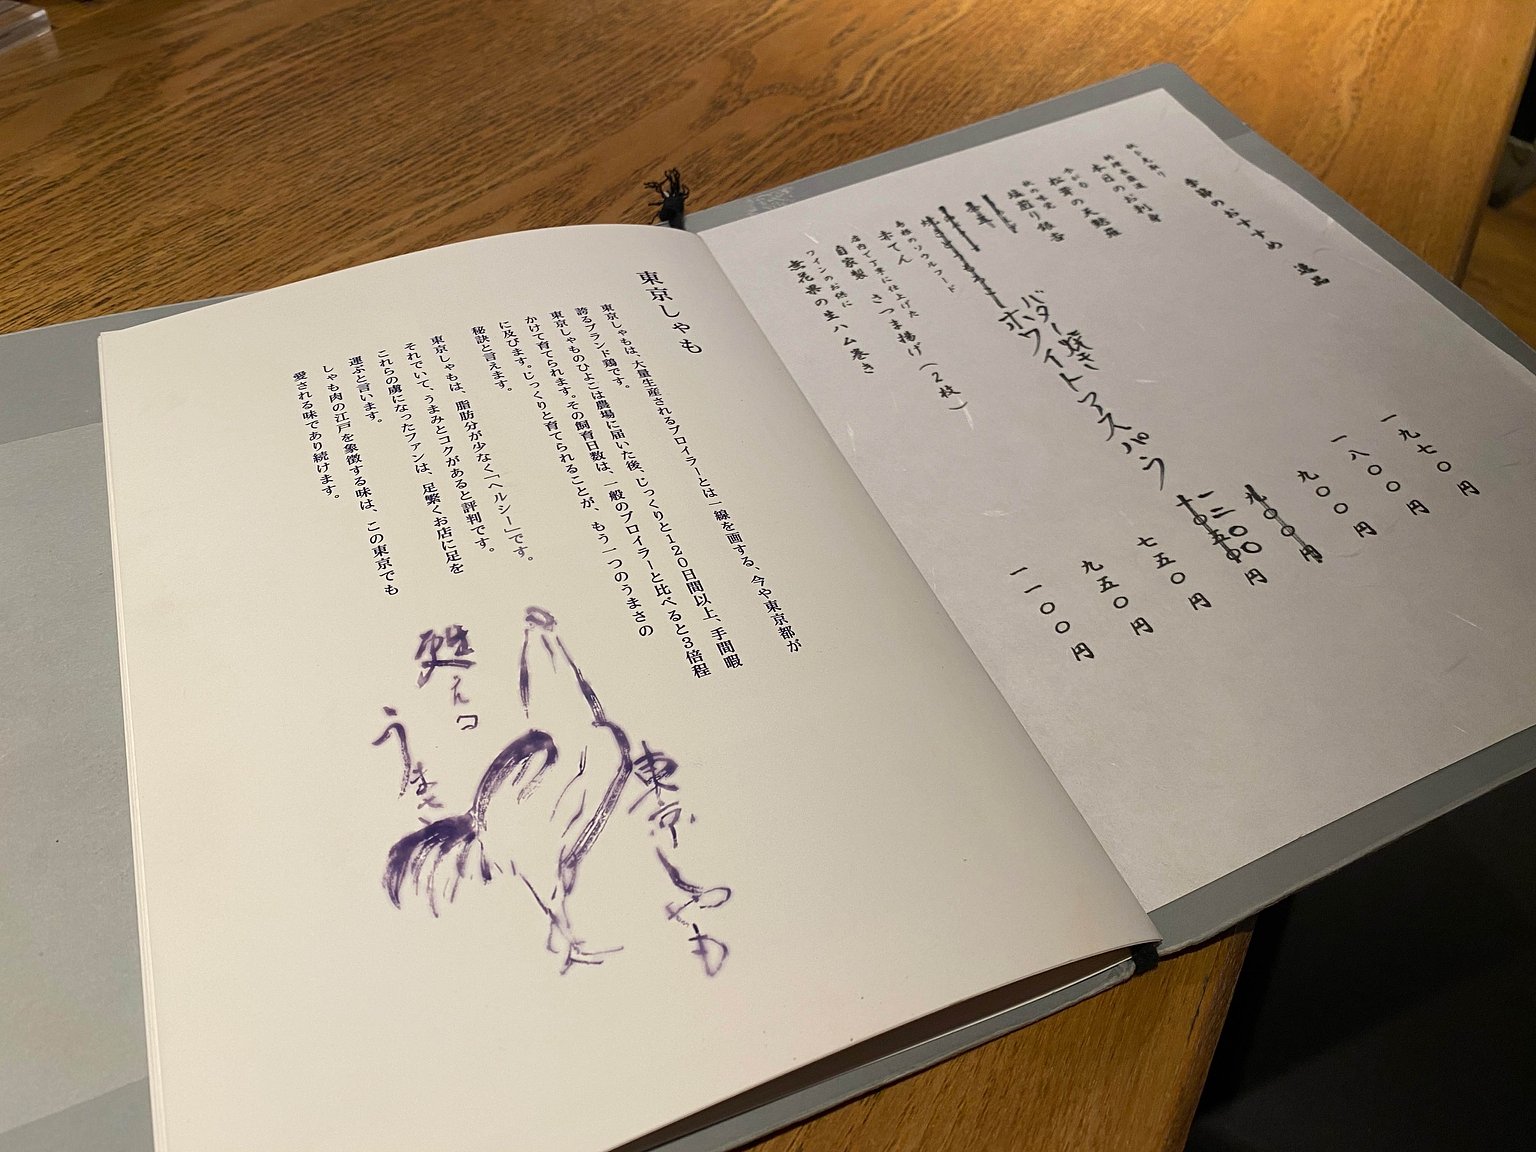 季節のおすすめ 逸品
料理長厳選
本日のお刺身
一九七〇円
松茸の天麩羅
一八〇〇円
秋の味覚
塩煎り銀杏
九〇〇円
バター焼き
ホワイトアスパラ
一三〇〇円
島根のソウルフード
赤てん
七五〇円
店内で丁寧に仕上げた
自家製 さつま揚げ(2枚)
九五〇円
ワインのお供に
無花果の生ハム巻き
一一〇〇円
東京しゃも
東京しゃもは、大量生産されるブロイラーとは一線を画する、今や東京都が
誇るブランド鶏です。
東京しゃものひよこは農場に届いた後、じっくりと120日間以上、手間暇
かけて育てられます。その飼育日数は、一般のブロイラーと比べると3倍程
に及びます。じっくりと育てられることが、もう一つのうまさの
秘訣と言えます。
東京しゃもは、脂肪分が少なく「ヘルシー」です。
それでいて、うまみとコクがあると評判です。
これらの虜になったファンは、足繁くお店に足を
運ぶと言います。
しゃも肉の江戸を象徴する味は、この東京でも
愛される味であり続けます。
東京しゃも
甦える
うまさ